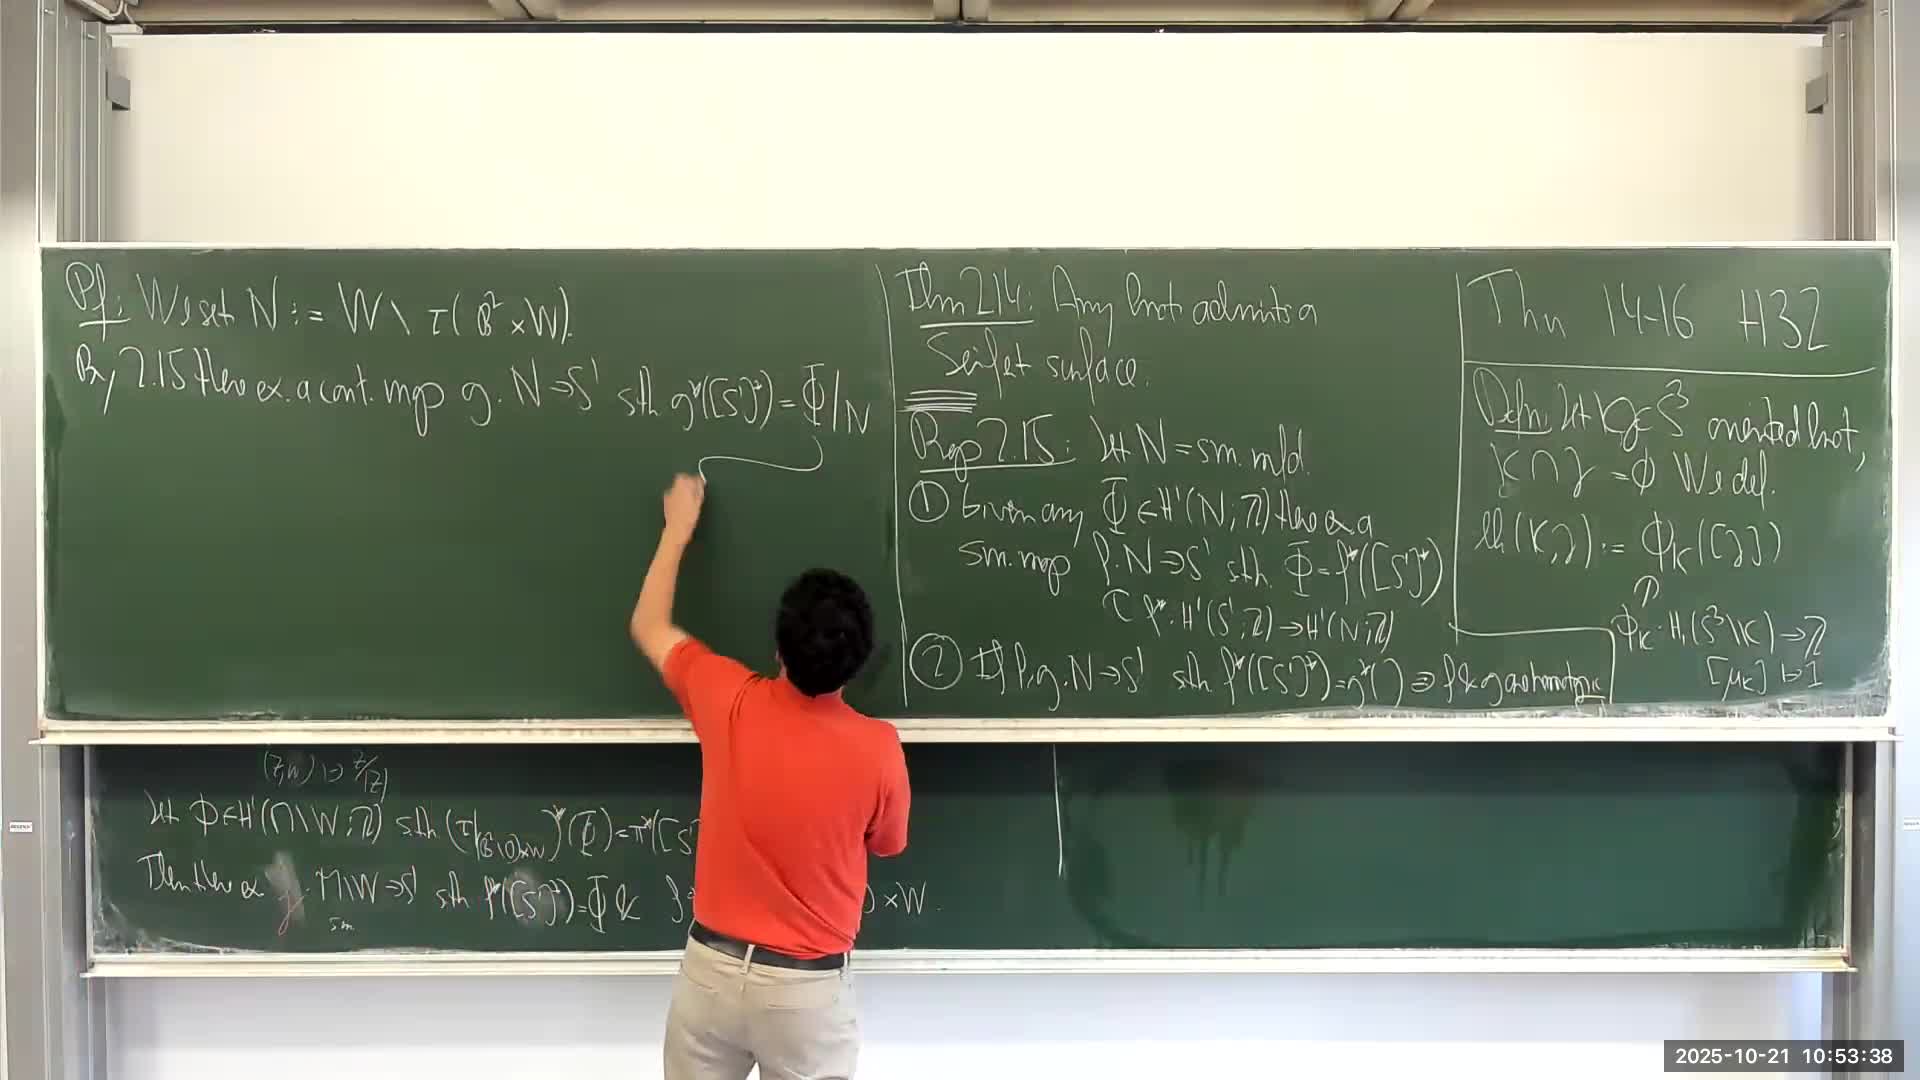 Pf: We set N := W \ τ(B² × W).
By 2.15 there ex. a cont. map g: N → S¹ s.th. g*([S¹]*) = Φ|N
Thm 2.14: Any knot admits a
Seifert surface.
Prop 2.15: Let N = sm. mfd.
① Given any Φ ∈ H¹(N; ℤ) there ex. a
sm. map f: N → S¹ s.th. Φ = f*([S¹]*)
f*: H¹(S¹; ℤ) → H¹(N; ℤ)
② If f, g: N → S¹ s.th. f*([S¹]*) = g*( ) ⇒ f & g are homotopic
Thu 14-16 H32
Defn: Let K ⊂ S³ oriented knot,
K ∩ J = ∅ We def.
lk(K, J) := Φ_K([J])
↑
Φ_K: H₁(S³ \ K) → ℤ
[μ_K] ↦ 1
(z, w) ↦ z/|z|
Let Φ ∈ H¹(M \ W; ℤ) s.th. (τ|(B² \ 0) × W)*(Φ) = π*([S¹
Then there ex. f: M \ W → S¹ s.th. f*([S¹]*) = Φ & ) × W.
sm
2025-10-21 10:53:38